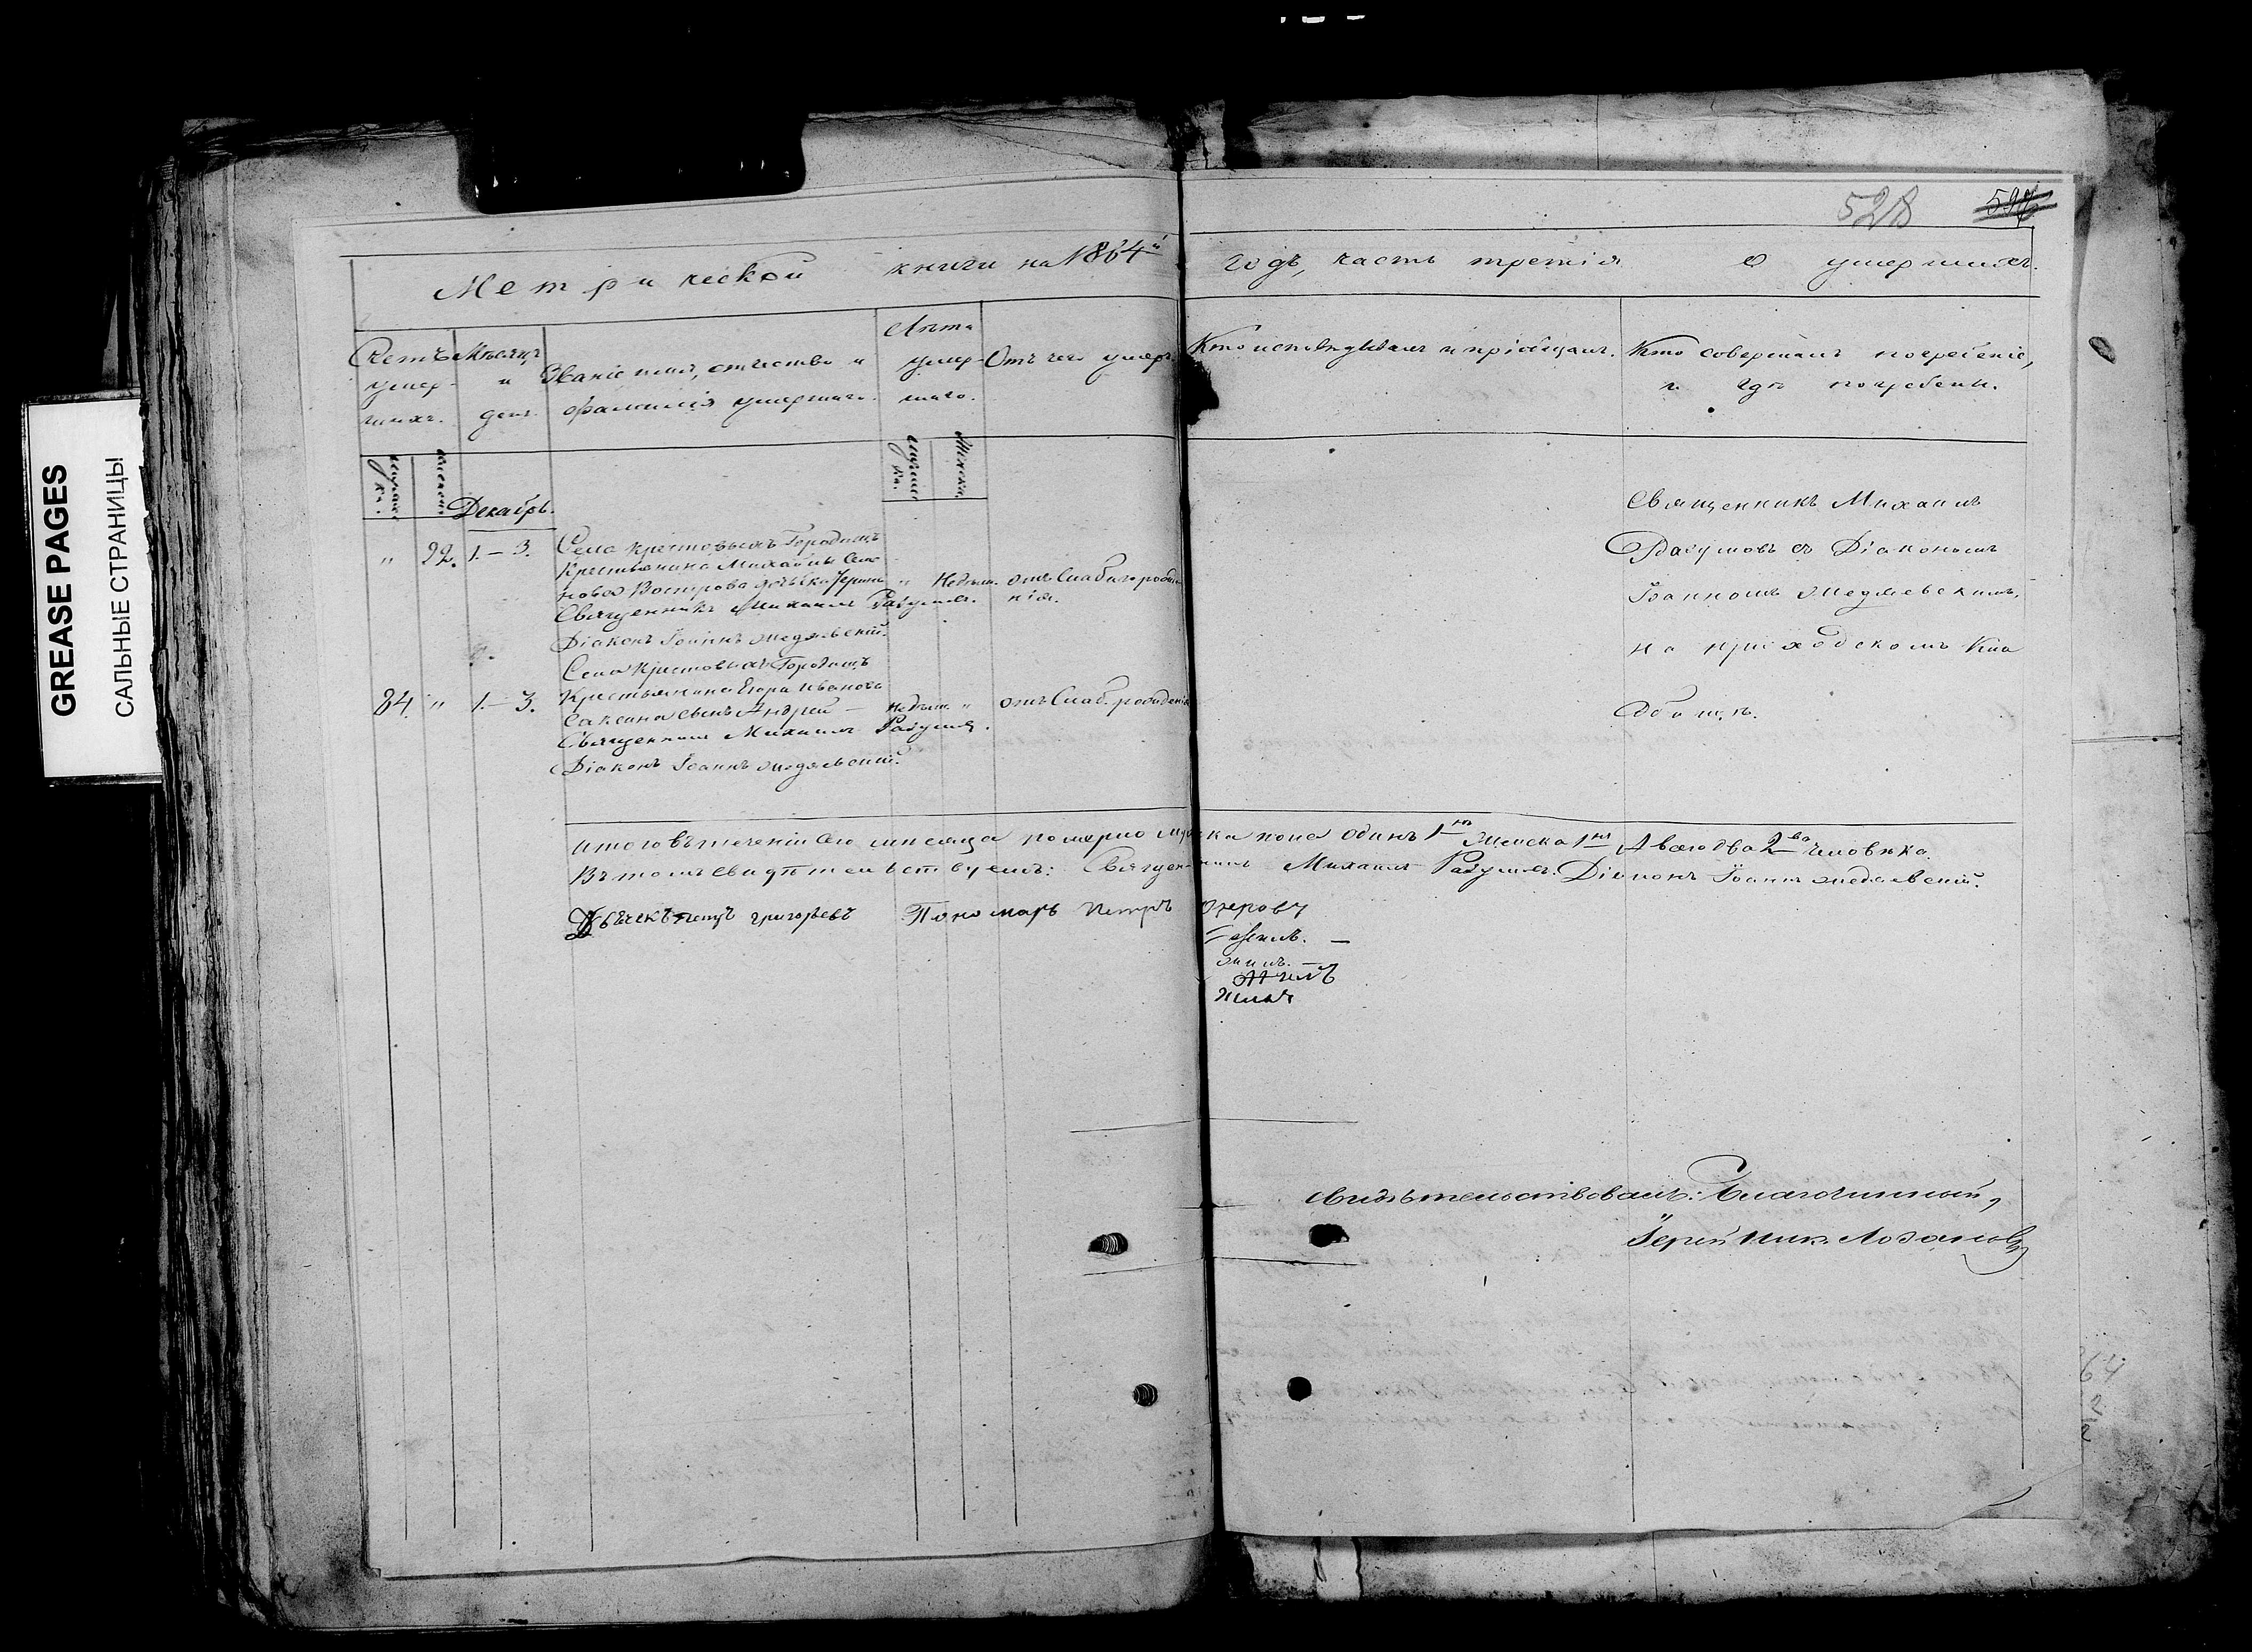 GREASE PAGES
САЛЬНЫЕ СТРАНИЦЫ
528
Метрической книги на 1864й годъ, часть третія о умершихъ.
Счетъ умер-шихъ.
Мѣсяцъ и день.
Званіе, имя, отчество и фамилія умершаго.
Лѣта умер-шаго.
Отъ чего умеръ.
Кто исповѣдывалъ и пріобщалъ.
Кто совершалъ погребеніе, и гдѣ погребены.
Декабрь.
" 22. 1.—3.
Села Крестовыхъ Городищъ
Крестьянина Михайлы Семе-
нова Вострова дочь
Священникъ Михаилъ Разумовъ.
Діаконъ Іоаннъ
" Недѣл. отъ Слабаго рожде-
нія.
Священникъ Михаилъ
Разумовъ съ Діакономъ
Іоанномъ
на приходскомъ Кла
дбищѣ.
84. " 1.—3.
Села Крестовыхъ Городищъ
Крестьянина Егора Иванова
сынъ Андрей —
Священникъ Михаилъ Разумовъ.
Діаконъ Іоаннъ
Недѣл. " отъ Слаб. рожденія
Итого въ теченіи сего мѣсяца померло мужска пола одинъ 1нъ женска 1на А всего два 2ва человѣка.
Въ томъ свидѣтельствуемъ: Священникъ Михаилъ Разумовъ. Діаконъ Іоаннъ
Дьячекъ Петръ Григорьевъ Пономарь Петръ Озеровъ
Свидѣтельствовалъ: Благочинный,
Іерей Ник. Лозановъ
64
2
2